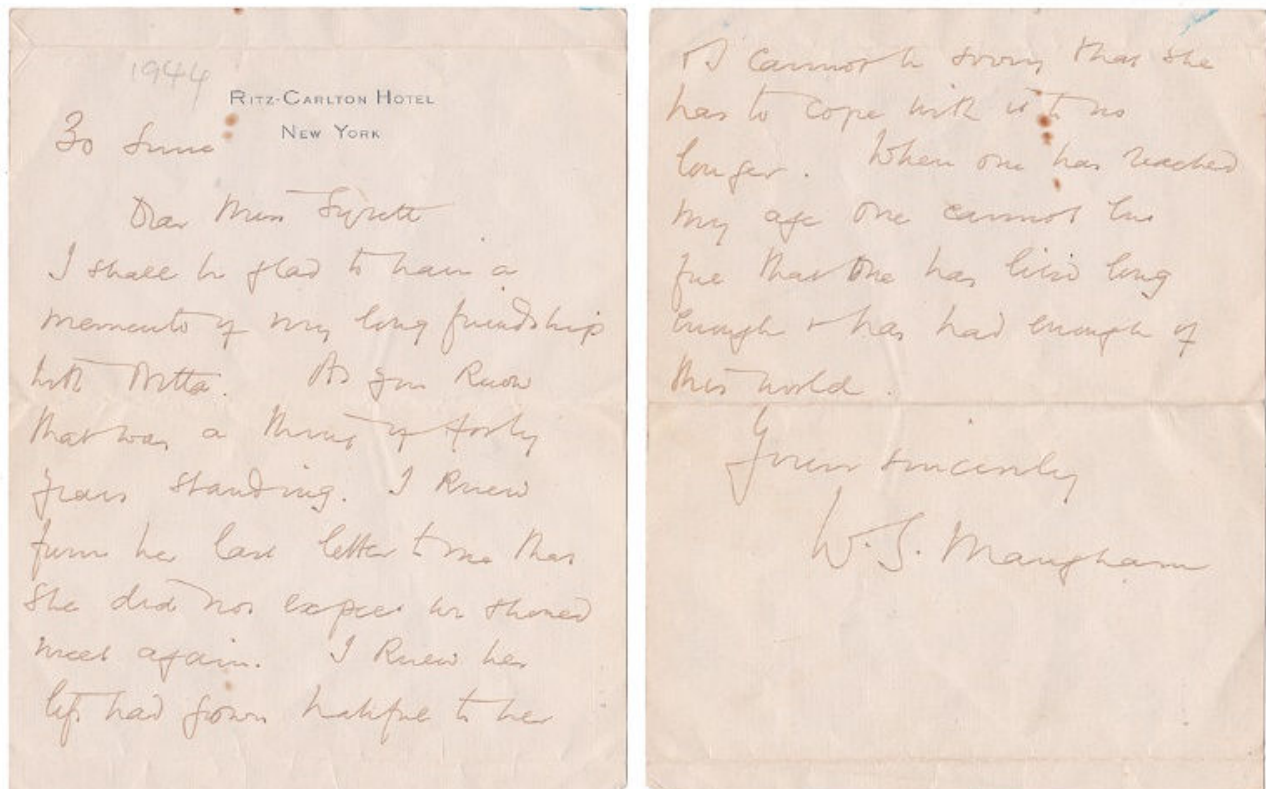 1944
RITZ-CARLTON HOTEL
NEW YORK
30 June
Dear Miss Syrett
I shall be glad to have a
memento of my long friendship
with Netta. As you know
that was a thing of forty
years standing. I knew
from her last letter to me that
she did not expect we should
meet again. I knew her
life had grown hateful to her
& I cannot be sorry that she
has to cope with it no
longer. When one has reached
my age one cannot but
feel that one has lived long
enough & has had enough of
this world.
Yours sincerely
W. S. Maugham